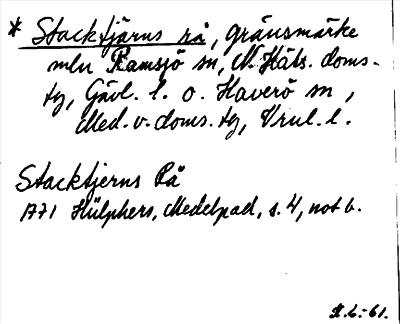 * Stacktjärns rå, gränsmärke
mln Ramsjö sn, N. Häls. doms-
tg, Gävl. l. o. Haverö sn,
Med. v. doms. tg, Vrnl. l.
Stacktjerns Rå
1771 Hülphers, Medelpad, s. 4, not b.
-61.